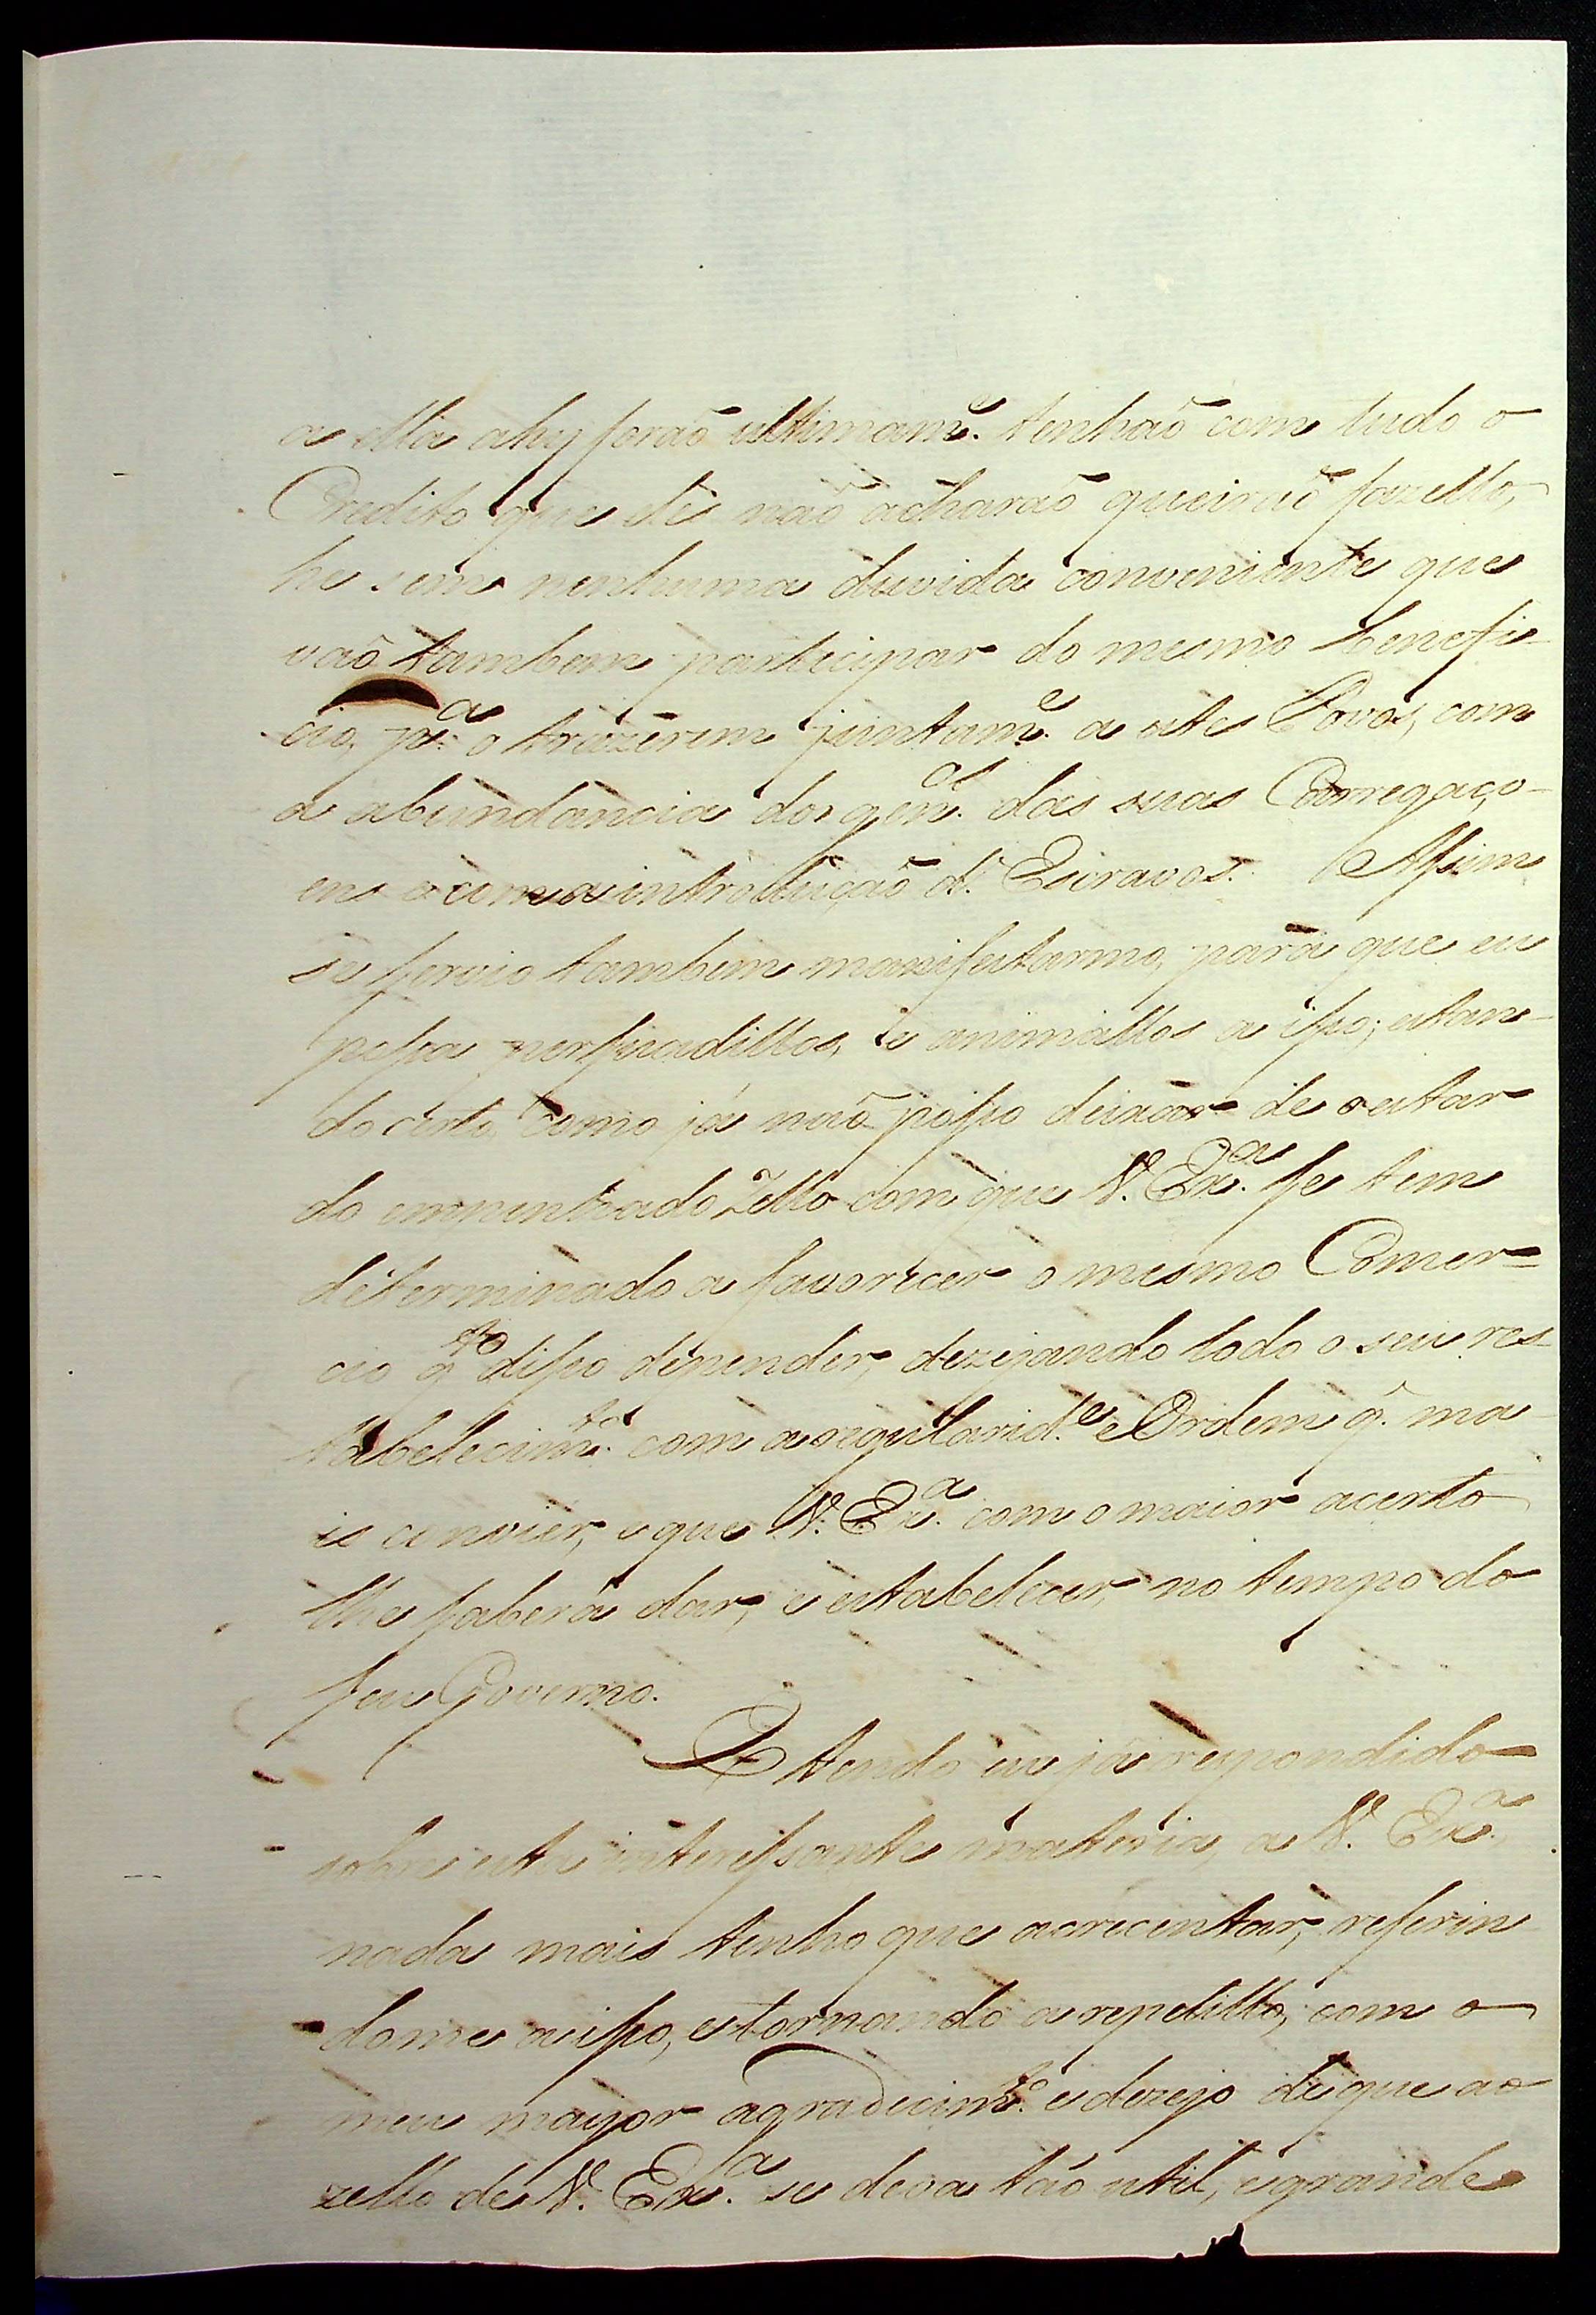 a ella ahy foraõ ultimam.e tenhaõ com tudo o
Credito que de naõ acharaõ queiraõ fazello,
he sem nenhuma duvida conveniente que
vaõ tambem participar do mesmo benefi-
cio, p.a o trazerem juntam.e a estes Povos, com
a abundancia dos gen.os das suas Carregaço-
ens e com a introduçaõ d.e Escravos. Assim
se servio tambem manifestarmo, para que eu
possa persuadillos, e animallos a isso; estan-
do certo, como já naõ posso deixar de o estar
do empenhado Zello com que V. Ex.a se tem
determinado a favorecer o mesmo Comer=
cio q.to disso depender, dezejando todo o seu res-
tabelecim.to com a regularid.e e Ordem q̃ ma
is convier, e que V. Ex.a com o maior acerto
lhe saberá dar, e estabelecer, no tempo do
seu Governo.
E tendo eu já respondido
sobre esta interessante materia, a V. Ex.a,
nada mais tenho que acrecentar, referin
dome a isso, e tornando a repetillo, com o
meu mayor agradecim.to e dezejo de que ao
zello de V. Ex.a se deva taõ util, e grande